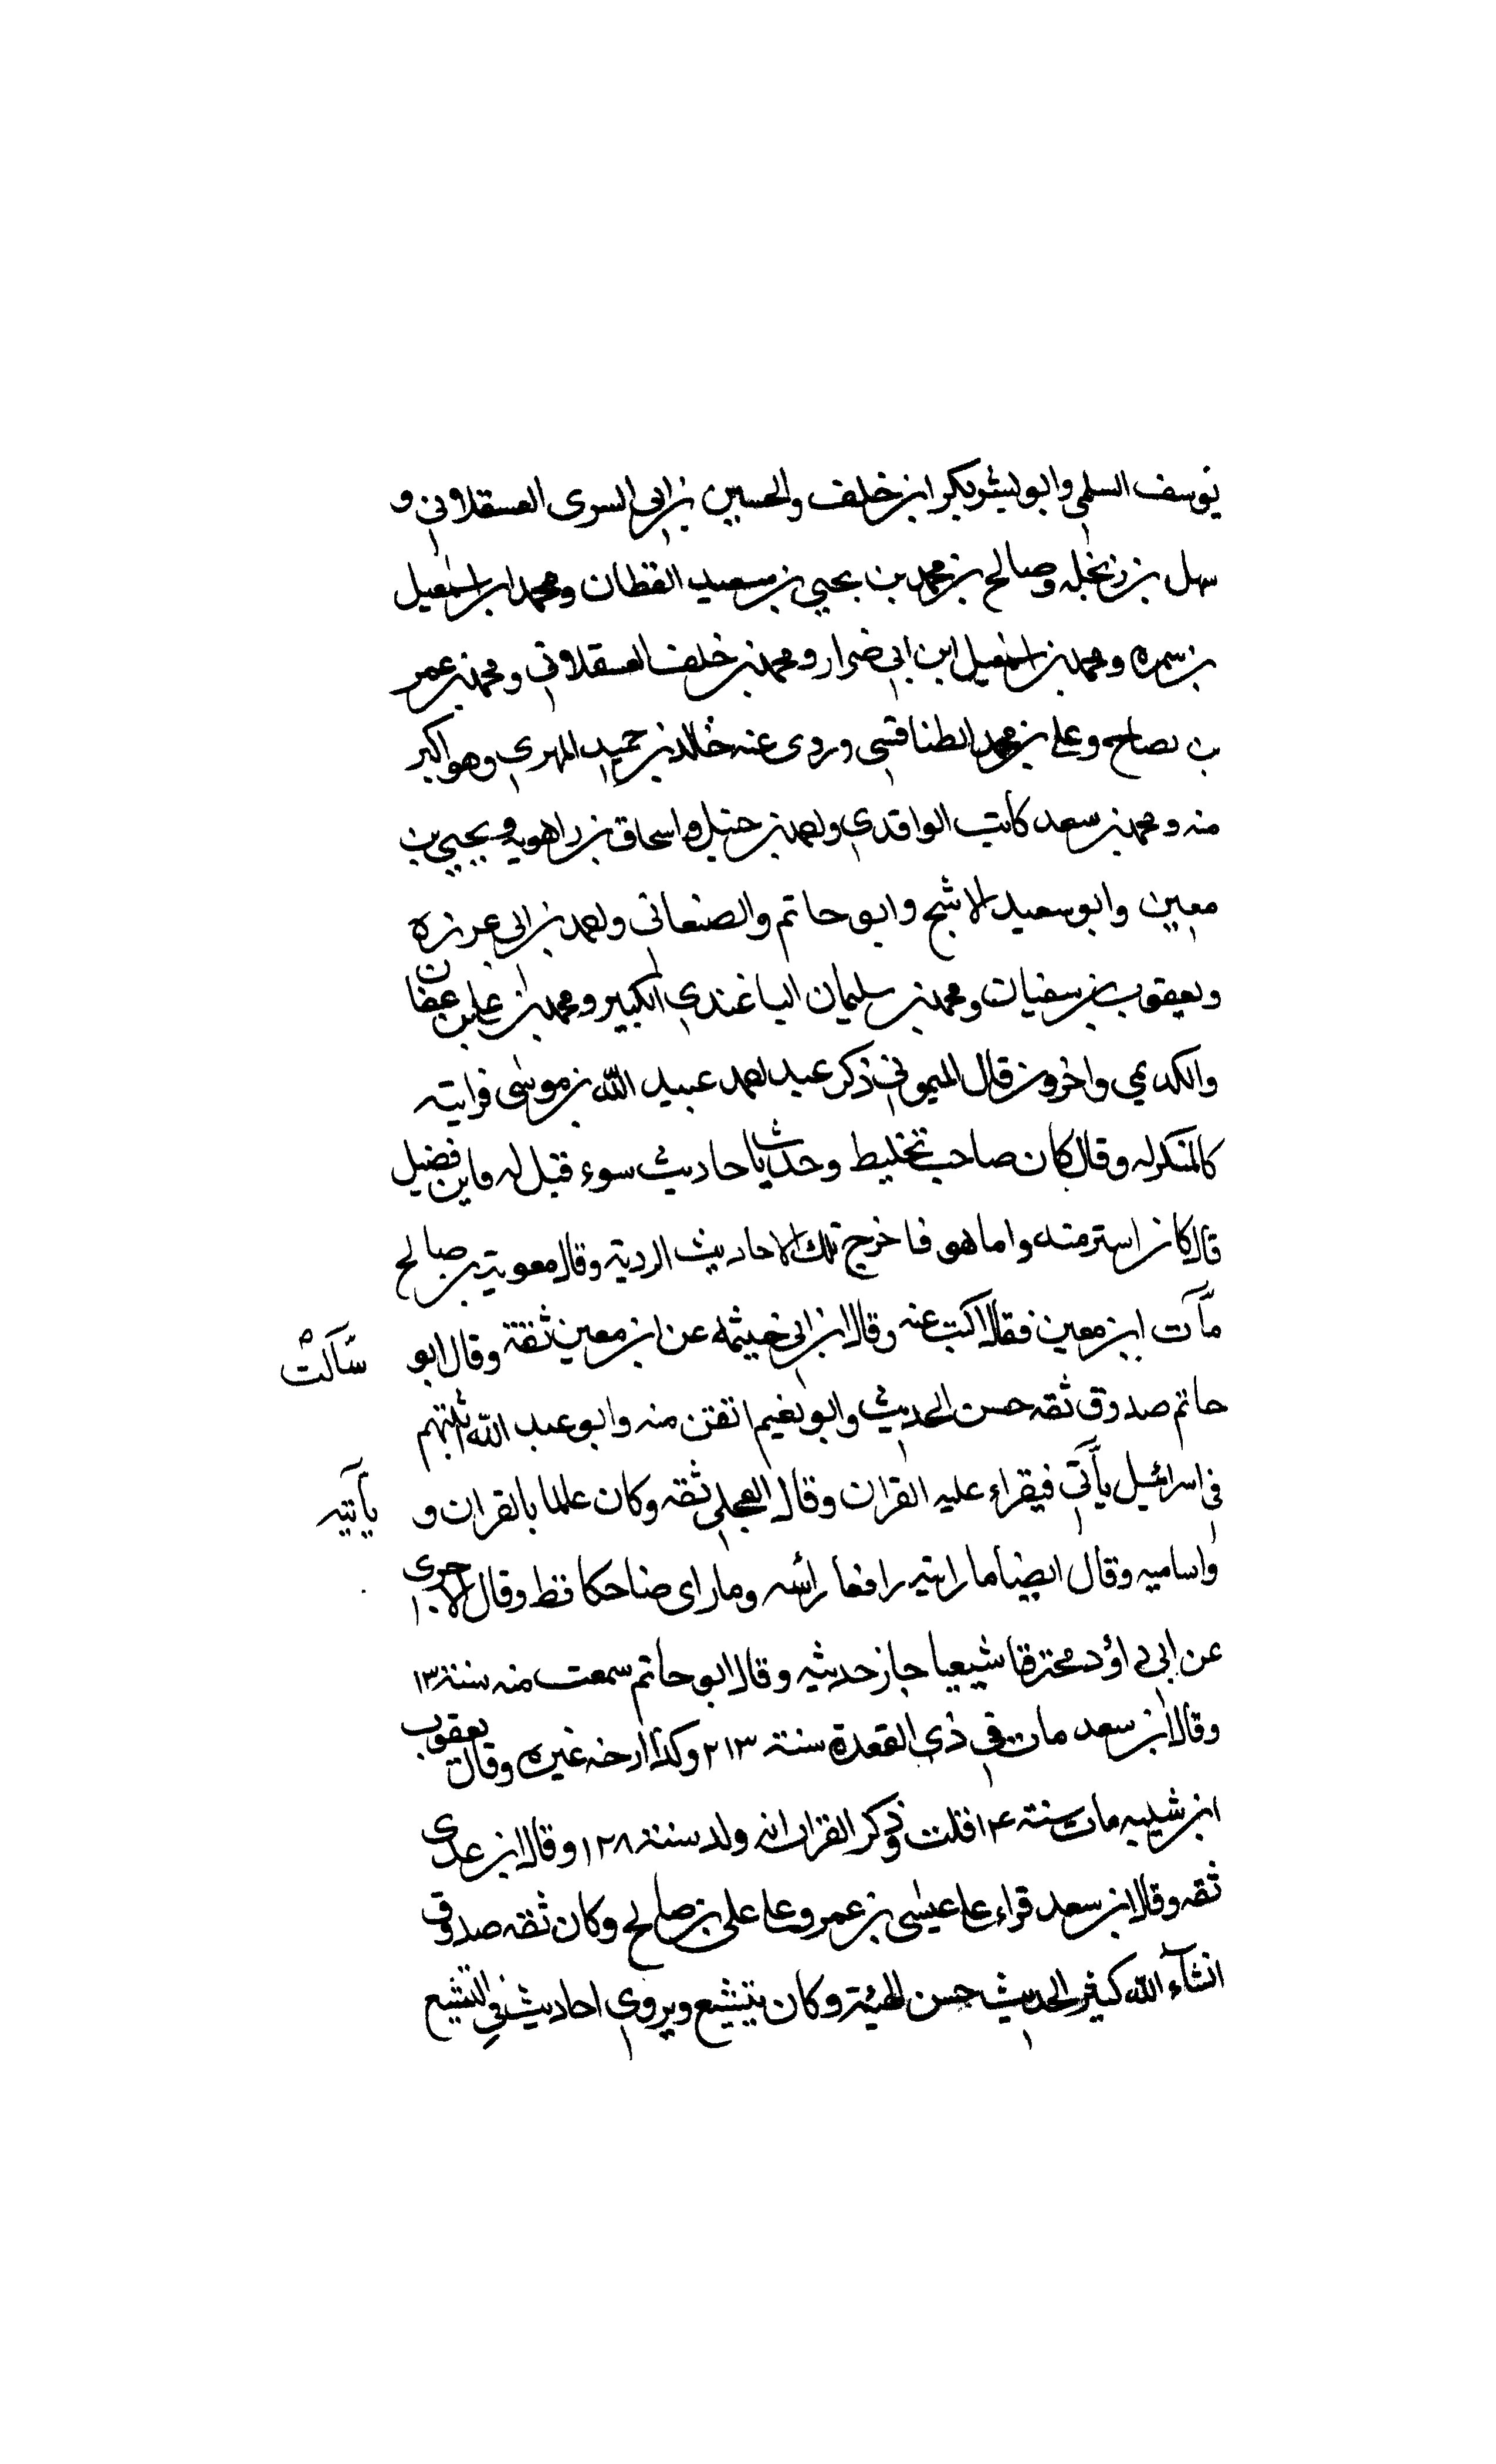 يوسف السلمي وابو بشر بكر ابن خلف والحسين بن ابي السرى العسقلاني و
سهل بن زنجله وصالح بن محمد بن يحيي بن سعيد القطان ومحمد ابن اسمعيل
بن سمره ومحمد بن اسمعيل ابن ابي ضرار ومحمد بن خلف العسقلاني ومحمد بن عمر
بن صالح وعلي بن محمد الطنافسي وروى عنه خالد بن حميد المهري وهو اكبر
منه ومحمد بن سعد كاتب الواقدي واحمد بن حنبل واسحاق بن راهويه ويحيي بن
معين وابو سعيد الاشج وابو حاتم والصنعاني واحمد بن ابي عرزه
ويعقوب بن سفيان ومحمد بن سليمان الباغندي الكبير ومحمد بن علي بن عفان
والكديمي واخرون قال الميموني ذكر عند احمد عبيد الله بن موسى فرايته
كالمنكر له وقال كان صاحب تخليط وحدث باحاديث سوء قيل له فابن فضيل
قال كان استر منه واما هو فاخرج تلك الاحاديث الرديه وقال معوية بن صالح
سَأَلتْ
مآت ابن معين فقال اكتب عنه وقال ابن ابي خيثمه عن ابن معين ثقة وقال ابو
حاتم صدوق ثقه حسن الحديث وابو نعيم اتقن منه وابو عبد الله اثبتهم
يأتيه
في اسرائيل يأتي فيقراء عليه القران وقال العجلي ثقه وكان عالما بالقران و
واساميه وقال ايضا ما رايته رافعا رأسه وما راى ضاحكا قط وقال الاجرى
عن ابي داؤد محترقا شيعيا جاز حديثه وقال ابو حاتم سمعت منه سنة ١٣
وقال ابن سعد مات في ذي القعدة سنة ٢١٣ وكذا ارخه غيره وقال يعقوب
ابن شيبه مات سنة ١٤ قلت وذكر القراب انه ولد سنة ١٢٨ وقال ابن عدى
ثقه وقال ابن سعد قراء على عيسى بن عمر وعلى علي بن صالح وكان ثقه صدوق
انشآء الله كثير الحديث حسن الهيئة وكان يتشيع ويروي احاديث في التشيع